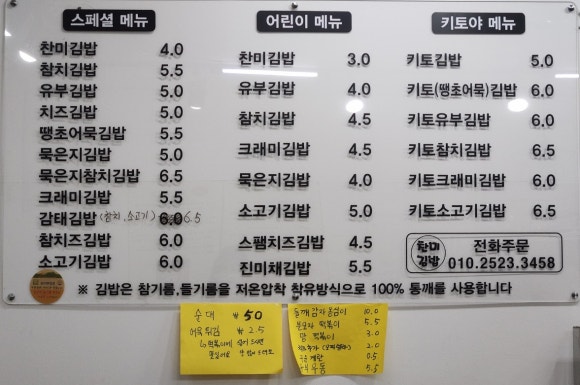 스페셜 메뉴
찬미김밥 4.0
참치김밥 5.5
유부김밥 5.0
치즈김밥 5.0
땡초어묵김밥 5.5
묵은지김밥 5.0
묵은지참치김밥 6.5
크래미김밥 5.5
감태김밥 (참치, 소고기) 6.5
참치즈김밥 6.0
소고기김밥 6.0
어린이 메뉴
찬미김밥 3.0
유부김밥 4.0
참치김밥 4.5
크래미김밥 4.5
묵은지김밥 4.0
소고기김밥 5.0
스팸치즈김밥 4.5
진미채김밥 5.5
키토야 메뉴
키토김밥 5.0
키토(땡초어묵)김밥 6.0
키토유부김밥 6.0
키토참치김밥 6.5
키토크래미김밥 6.0
키토소고기김밥 6.5
찬미김밥
전화주문
010.2523.3458
※ 김밥은 참기름,들기름을 저온압착 착유방식으로 100% 통깨를 사용합니다
순대 ₩ 50
어묵튀김 ₩ 2.5
들깨감자옹심이 10.0
떡볶이 5.5
떡볶이 3.0
2.0
계란 0.5
우동 5.5